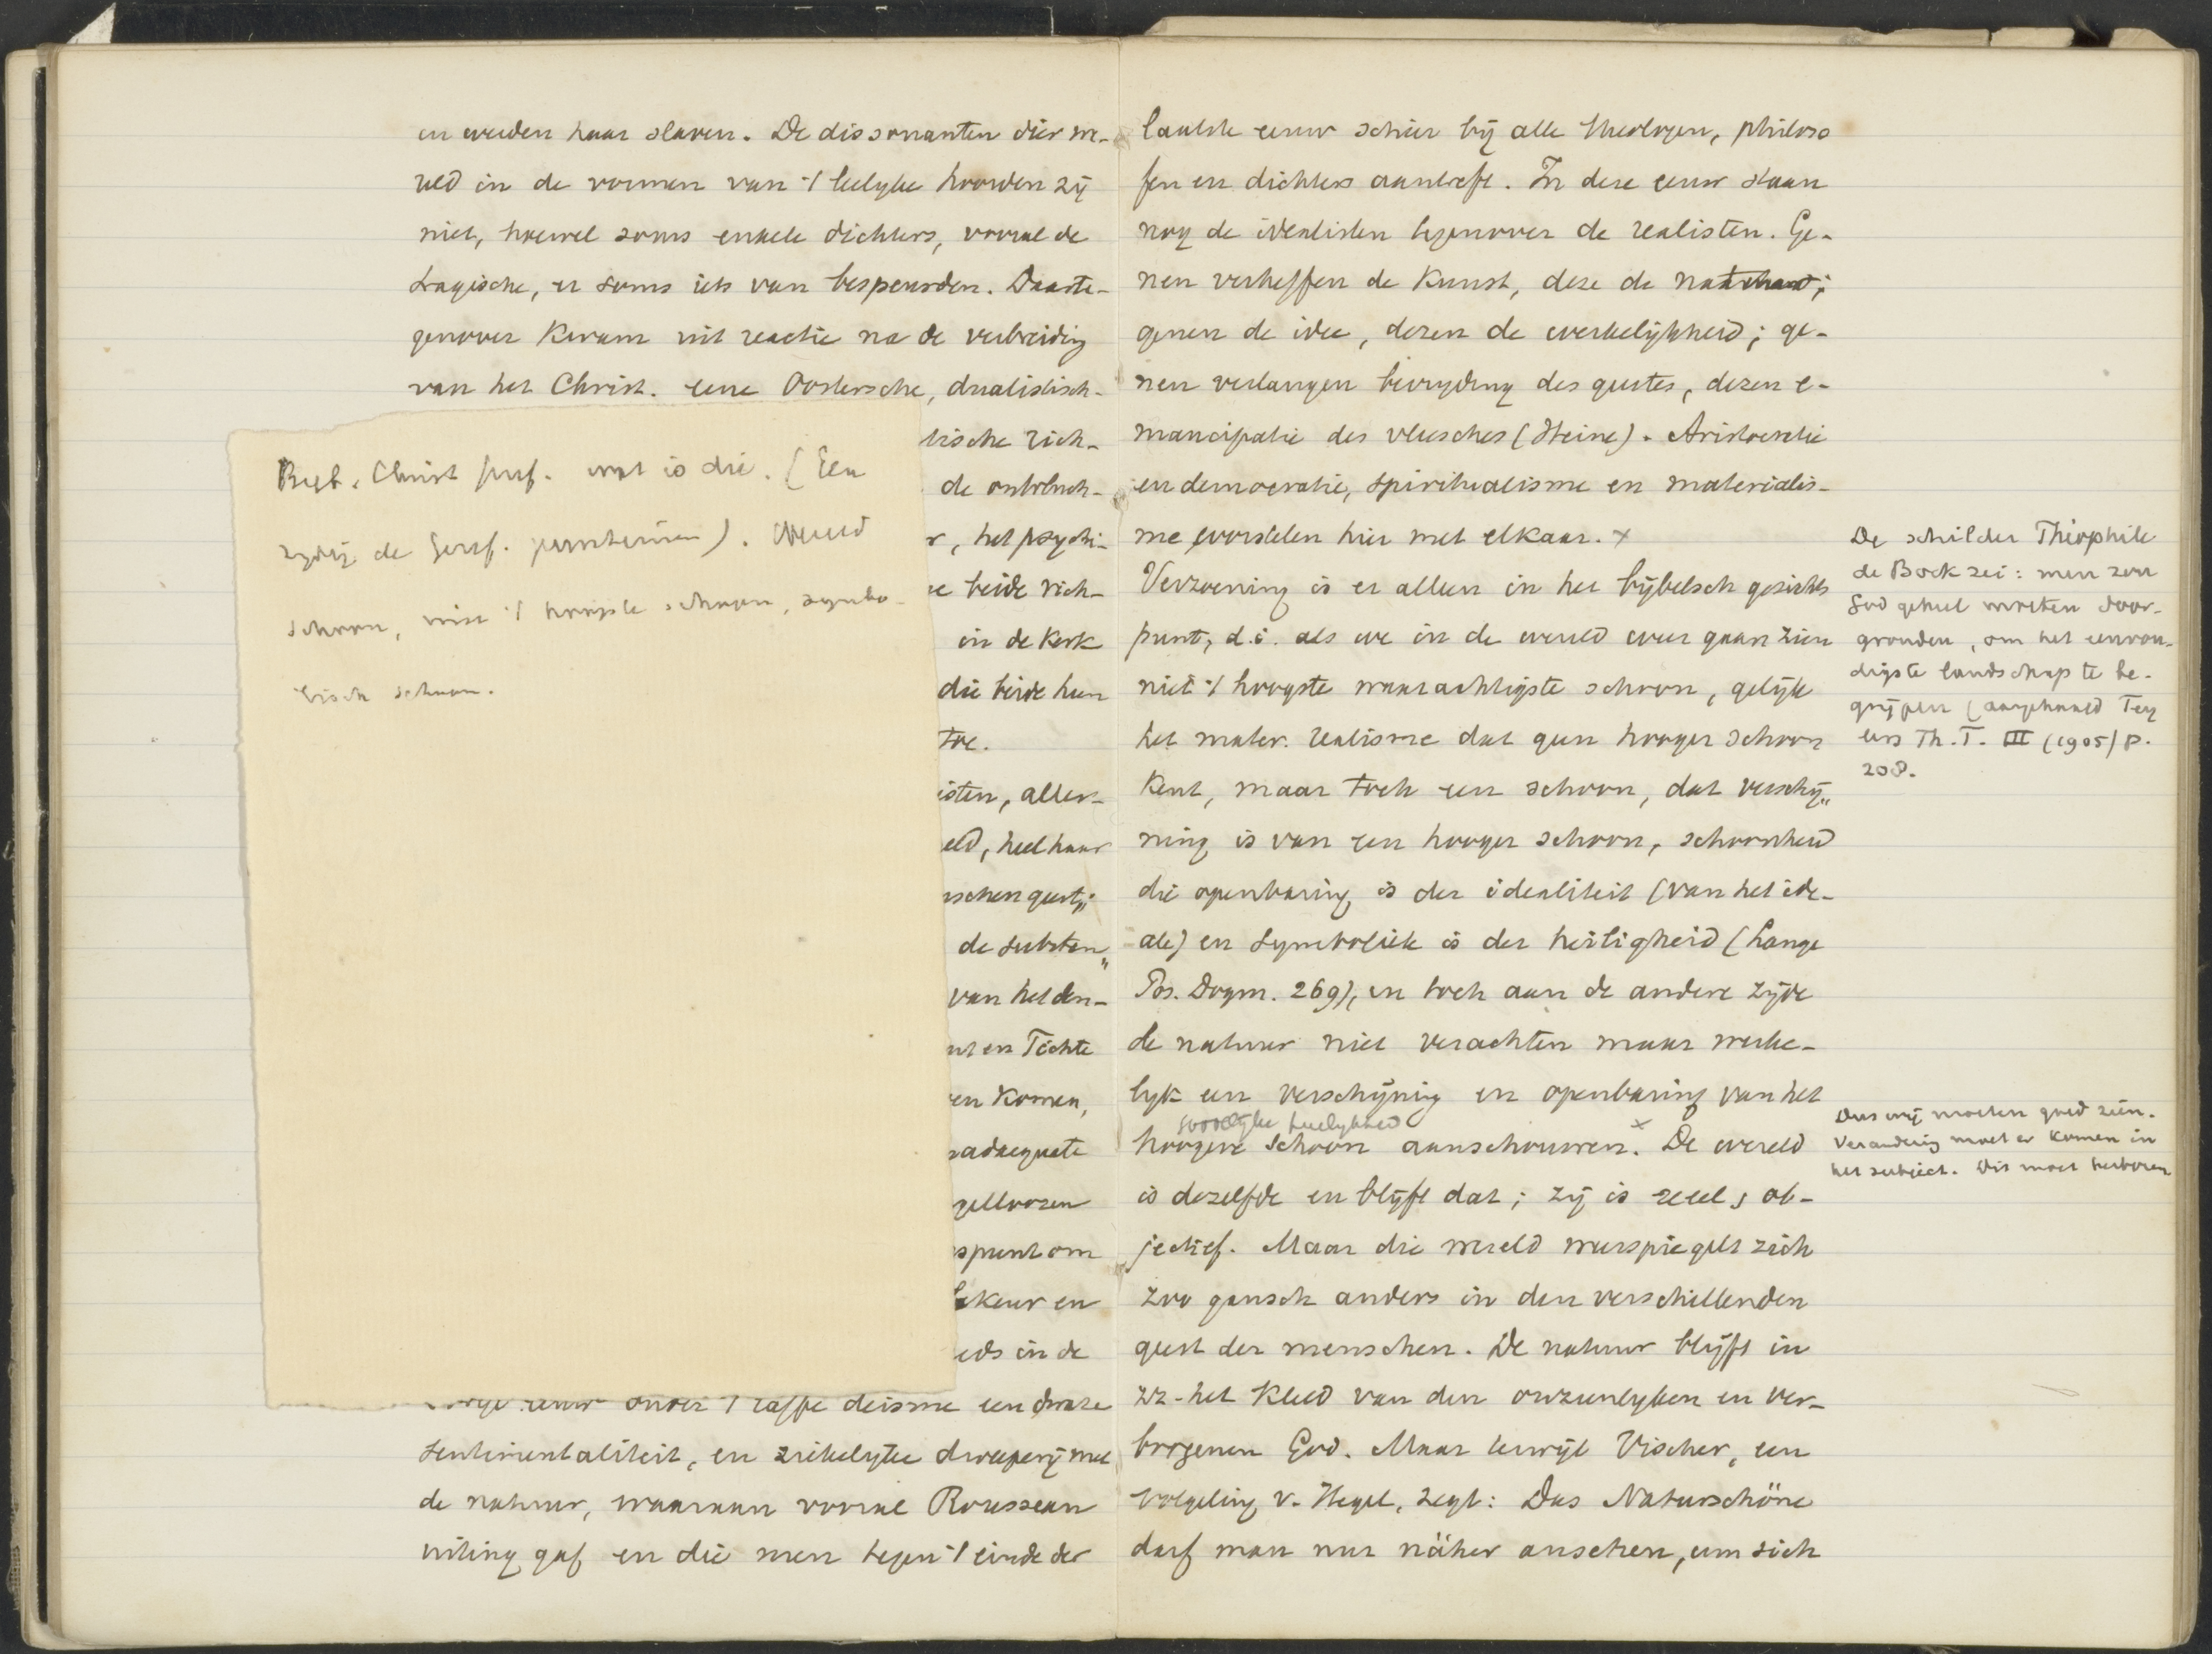 en werden haar slaven. De dissonanten dier we-
reld in de vormen van 't leelyke hoorden zij
niet, hoewel soms enkele dichters, vooral de
tragische, er soms iets van bespeurden. Daarte-
genover kwam uit reactie na de verbreiding
van het Christ. eene Oostersche, dualistisch-
tische rich-
de
r, het psychi-
e beide rich-
in de Kerk
die beide hun
toe.
isten, aller-
eld, heel haar
schen geest;
de substan„
van het den-
nt en Fichte
en komen,
adaequate
gelloozen
spunt om
keur en
eds in de
eeuw onder 't laffe deisme een dwaze
sentimentaliteit, en ziekelyke dweepery met
de natuur, waaraan vooral Rousseau
uiting gaf en die men tegen 't einde der
Christ wat is die. (Een
zydig de ). Wereld
schoon, niet 't hoogste schoon, symbo-
lisch schoon.
laatste eeuw schier bij alle theologen, philoso
fen en dichters aantreft. In deze eeuw staan
nog de idealisten tegenover de realisten. Ge-
nen verheffen de Kunst, deze de
genen de idee, dezen de werkelijkheid; ge-
nen verlangen bevryding des geestes, dezen e-
mancipatie des vleesches (Heine). Aristocratie
en democratie, spiritualisme en materialis-
me worstelen hier met elkaar. x
Verzoening is er alleen in het bijbelsch gezichts
punt, d.i. als we in de wereld weer gaan zien
niet 't hoogste waarachtigste schoon, gelijk
het mater. realisme dat geen hooger schoon
kent, maar toch een schoon, dat verschij„
ning is van een hooger schoon, schoonheid
die openbaring is der idealiteit (van het ide-
ale) en symboliek is der heiligheid (Lange
Pos. Dogm. 269), en toch aan de andere zijde
de natuur niet verachten maar werke-
lyk een verschijning en openbaring van het
heerlykheid
hoogere schoon aanschouwen. x De wereld
is dezelfde en blijft dat; zij is reeel, ob-
jectief. Maar die wereld weerspiegelt zich
zoo gansch anders in den verschillenden
geest der menschen. De natuur blijft in
zz. het kleed van den onzienlyken en ver-
borgenen God. Maar terwijl Vischer, een
volgeling v. Hegel, zegt: Das Naturschöne
darf man nur näher ansehen, um sich
De schilder Théophile
de Bock zei: men zou
God geheel moeten door-
gronden, om het eenvou-
digste landschap te be-
grijpen (aangehaald Tey
lers Th. T. III (1905) p.
208.
Dus wij moeten goed zien.
Verandering moet er komen in
het subject. Dit moet herboren